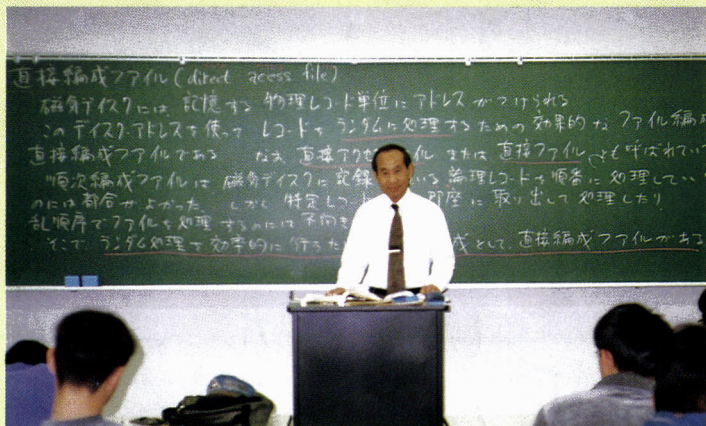 直接編成ファイル(direct acess file)
磁気ディスクには、記憶する物理レコード単位にアドレスがつけられる
このディスク・アドレスを使って レコードをランダムに処理するための効果的なファイル編成
直接編成ファイルである なお、直接アクセ イル または 直接ファイル とも呼ばれてい
順次編成ファイルは 磁気ディスクに記録 いる論理レコードを順番に処理してい
のには都合がよかった しかし 特定レコ 即座に取り出して処理したり
乱順序でファイルを処理するのには不向き
そこで ランダム処理を効率的に行うた 成として、直接編成ファイルがある